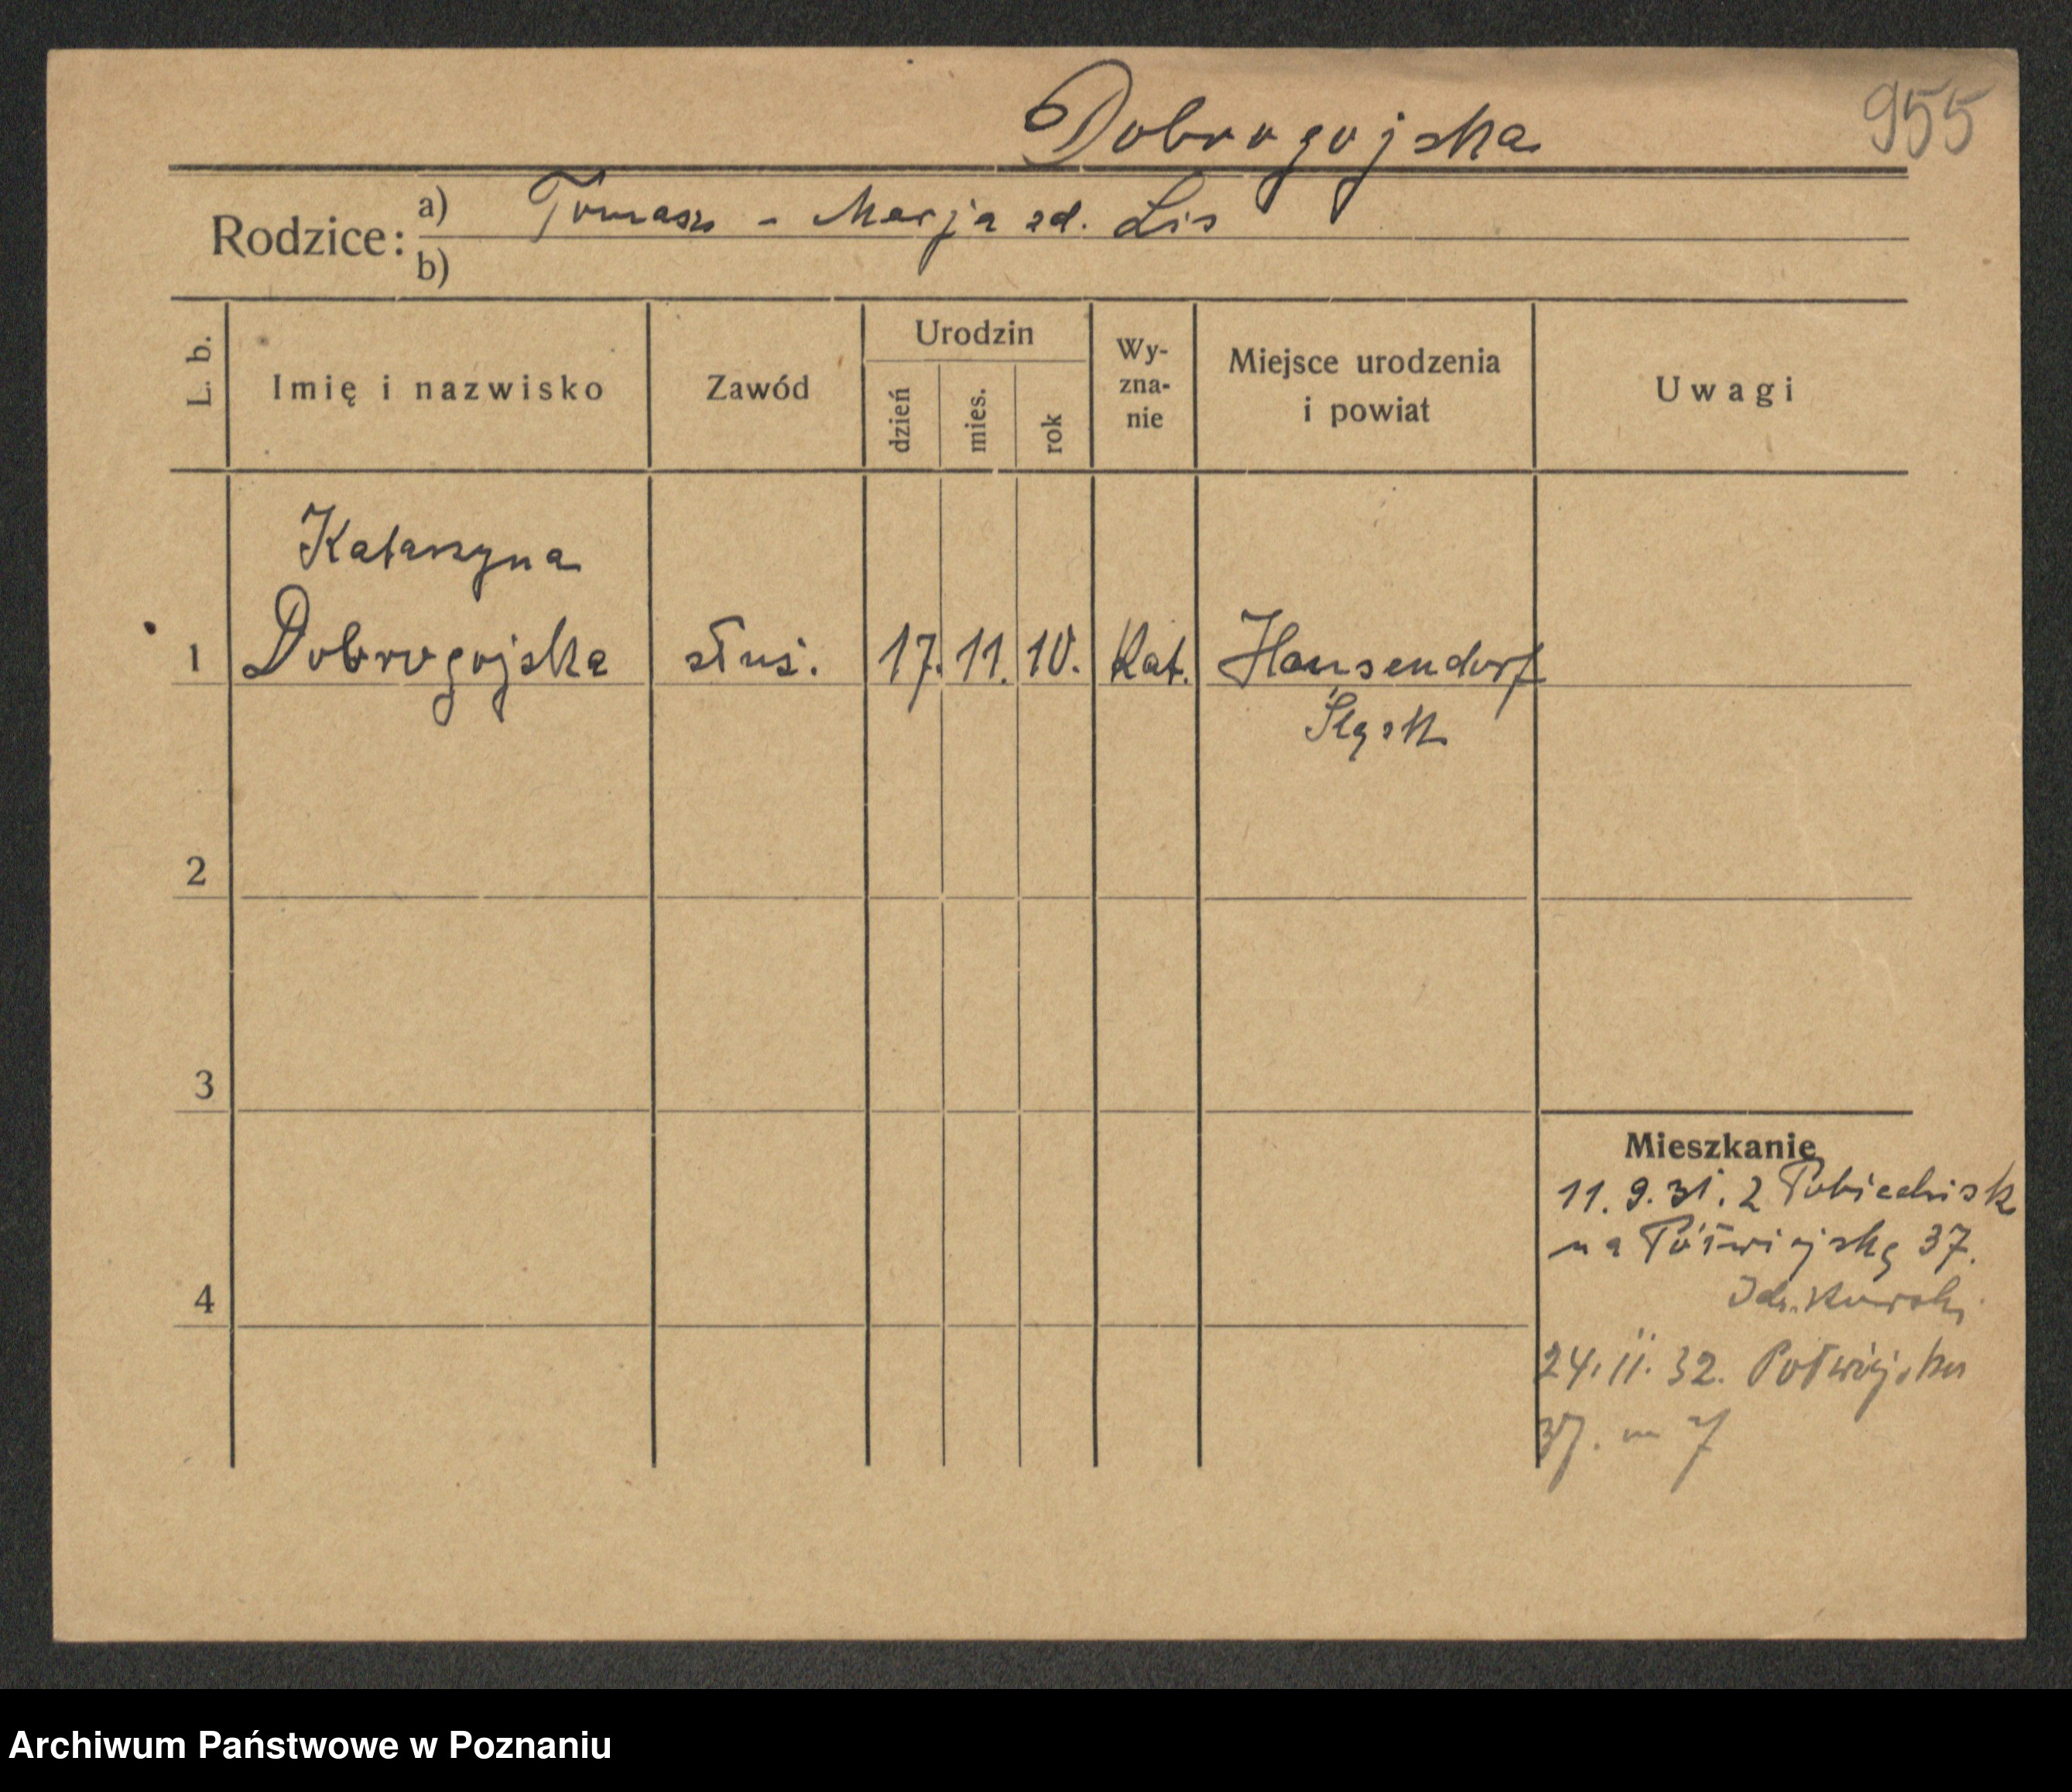 Dobrogojska 955
Rodzice: a) Tomasz - Marja zd. Lis
b)
L. b.
Imię i nazwisko
Zawód
Urodzin
dzień
mies.
rok
Wy-
zna-
nie
Miejsce urodzenia
i powiat
Uwagi
Katarzyna
1 Dobrogojska służ. 17. 11. 10. Kat. Hansendorf
Śląsk
2
3
4
Mieszkanie
11. 9. 31. z Pobiedzisk
na Półwiejską 37.
24. 11. 32. Półwiejska
37. m 7
Archiwum Państwowe w Poznaniu